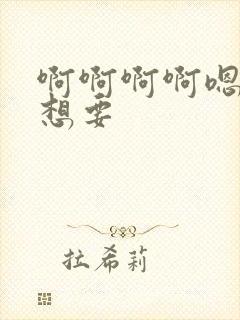 啊啊啊啊嗯
想要
拉希莉